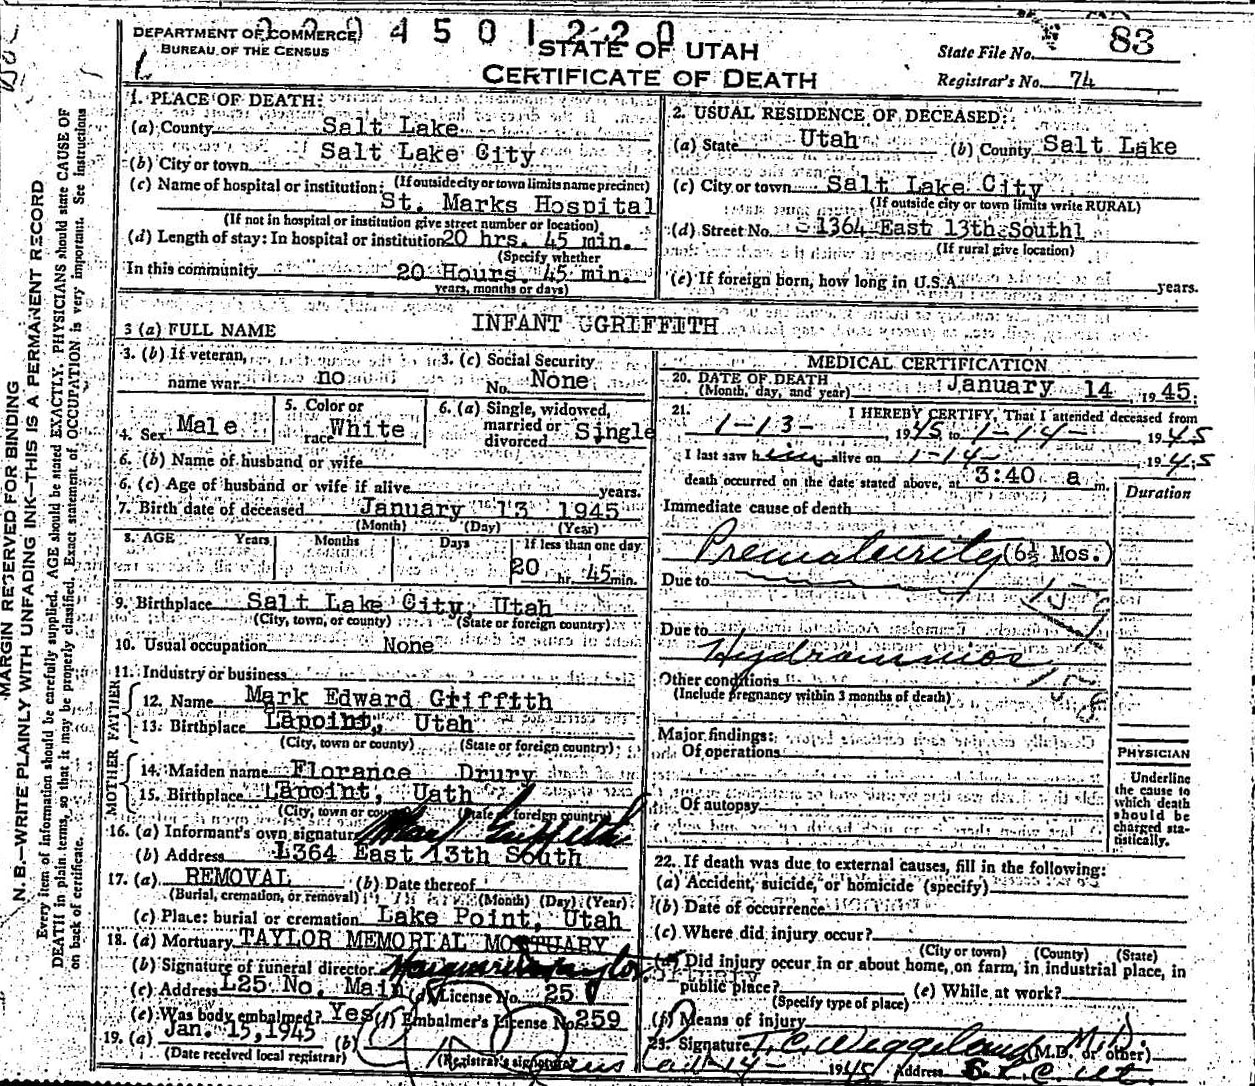 DEPARTMENT OF COMMERCE
BUREAU OF THE CENSUS
4 5 0 1 2 2 0
STATE OF UTAH
CERTIFICATE OF DEATH
State File No. 83
Registrar's No. 74
MARGIN RESERVED FOR BINDING
N. B.—WRITE PLAINLY WITH UNFADING INK—THIS IS A PERMANENT RECORD
Every item of information should be carefully supplied. AGE should be stated EXACTLY. PHYSICIANS should state CAUSE OF
DEATH in plain terms, so that it may be properly classified. Exact statement of OCCUPATION is very important. See instructions
on back of certificate.
1. PLACE OF DEATH:
(a) County Salt Lake
(b) City or town Salt Lake City
(If outside city or town limits name precinct)
(c) Name of hospital or institution:
St. Marks Hospital
(If not in hospital or institution give street number or location)
(d) Length of stay: In hospital or institution 20 hrs. 45 min.
(Specify whether
In this community 20 Hours 45 min.
years, months or days)
2. USUAL RESIDENCE OF DECEASED:
(a) State Utah (b) County Salt Lake
(c) City or town Salt Lake City
(If outside city or town limits write RURAL)
(d) Street No. 1364 East 13th South
(If rural give location)
(e) If foreign born, how long in U.S.A. years.
3 (a) FULL NAME INFANT GRIFFITH
3. (b) If veteran,
name war no
3. (c) Social Security
No. None
4. Sex Male
5. Color or
race White
6. (a) Single, widowed,
married or
divorced Single
6. (b) Name of husband or wife
6. (c) Age of husband or wife if alive years.
7. Birth date of deceased January 13 1945
(Month) (Day) (Year)
8. AGE Years Months Days If less than one day
20 hr. 45 min.
9. Birthplace Salt Lake City, Utah
(City, town, or county) (State or foreign country)
10. Usual occupation None
11. Industry or business
FATHER
12. Name Mark Edward Griffith
13. Birthplace Lapoint, Utah
(City, town or county) (State or foreign country)
MOTHER
14. Maiden name Florance Drury
15. Birthplace Lapoint, Uath
(City, town or county) (State or foreign country)
16. (a) Informant's own signature Mark Griffith
(b) Address 1364 East 13th South
17. (a) REMOVAL (b) Date thereof
(Burial, cremation, or removal) (Month) (Day) (Year)
(c) Place: burial or cremation Lake Point, Utah
18. (a) Mortuary TAYLOR MEMORIAL MORTUARY
(b) Signature of funeral director Taylor
(c) Address 125 No. Main (d) License No. 250
(e) Was body embalmed? Yes (f) Embalmer's License No. 259
19. (a) Jan. 15, 1945 (b)
(Date received local registrar) (Registrar's signature)
MEDICAL CERTIFICATION
20. DATE OF DEATH
(Month, day, and year) January 14 1945;
21. I HEREBY CERTIFY, That I attended deceased from
1-13- 1945 to 1-14- 1945
I last saw him alive on 1-14- 1945
death occurred on the date stated above, at 3:40 a m.
Duration
Immediate cause of death
Prematurity (6½ Mos.)
Due to
159
Due to
Hydramnios
158
Other conditions
(Include pregnancy within 3 months of death)
Major findings:
Of operations
Of autopsy
PHYSICIAN
Underline
the cause to
which death
should be
charged sta-
tistically.
22. If death was due to external causes, fill in the following:
(a) Accident, suicide, or homicide (specify)
(b) Date of occurrence
(c) Where did injury occur?
(City or town) (County) (State)
(d) Did injury occur in or about home, on farm, in industrial place, in
public place? (e) While at work?
(Specify type of place)
(f) Means of injury
23. Signature M.D.
(M.D. or other)
1-14- 1945 Address S. L. C. Ut